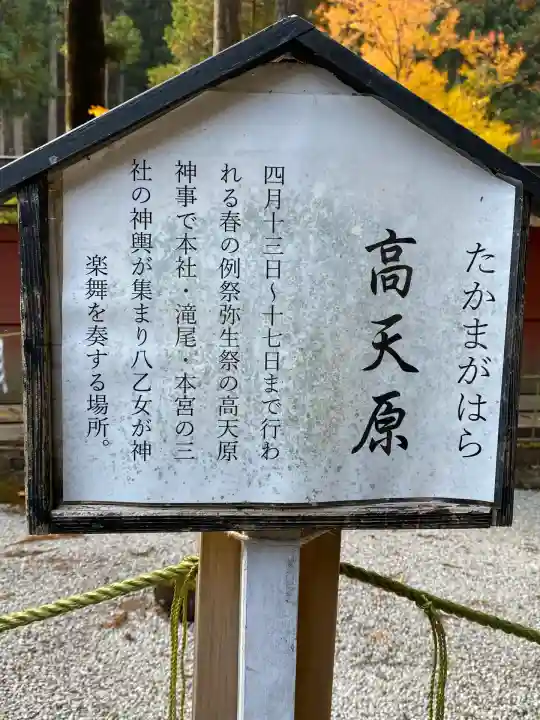 たかまがはら
高天原
四月十三日～十七日まで行わ
れる春の例祭弥生祭の高天原
神事で本社・滝尾・本宮の三
社の神輿が集まり八乙女が神
楽舞を奏する場所。